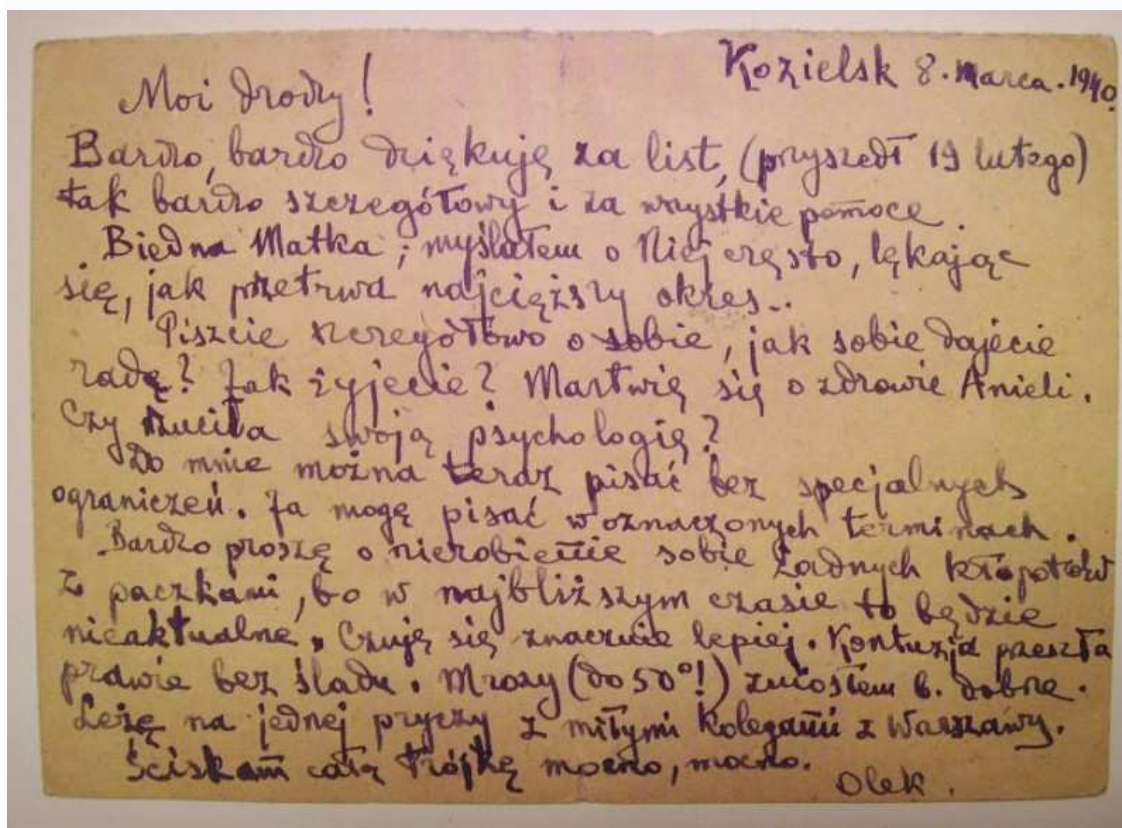 Kozielsk 8. marca. 1940.
Moi drodzy!
Bardzo, bardzo dziękuję za list, (przyszedł 19 lutego)
tak bardzo szczegółowy i za wszystkie pomoce.
Biedna Matka; myślałem o Niej często, lękając
się, jak przetrwa najcięższy okres...
Piszcie szczegółowo o sobie, jak sobie dajecie
radę? Jak żyjecie? Martwię się o zdrowie Anieli.
Czy rzuciła swoją psychologię?
Do mnie można teraz pisać bez specjalnych
ograniczeń. Ja mogę pisać w oznaczonych terminach.
Bardzo proszę o nierobienie sobie żadnych kłopotów
z paczkami, bo w najbliższym czasie to będzie
nieaktualne. Czuję się znacznie lepiej. Kontuzja przeszła
prawie bez śladu. Mrozy (do 50°!) zniosłem b. dobrze.
Leżę na jednej pryczy z miłymi Kolegami z Warszawy.
Ściskam całą trójkę mocno, mocno.
Olek.